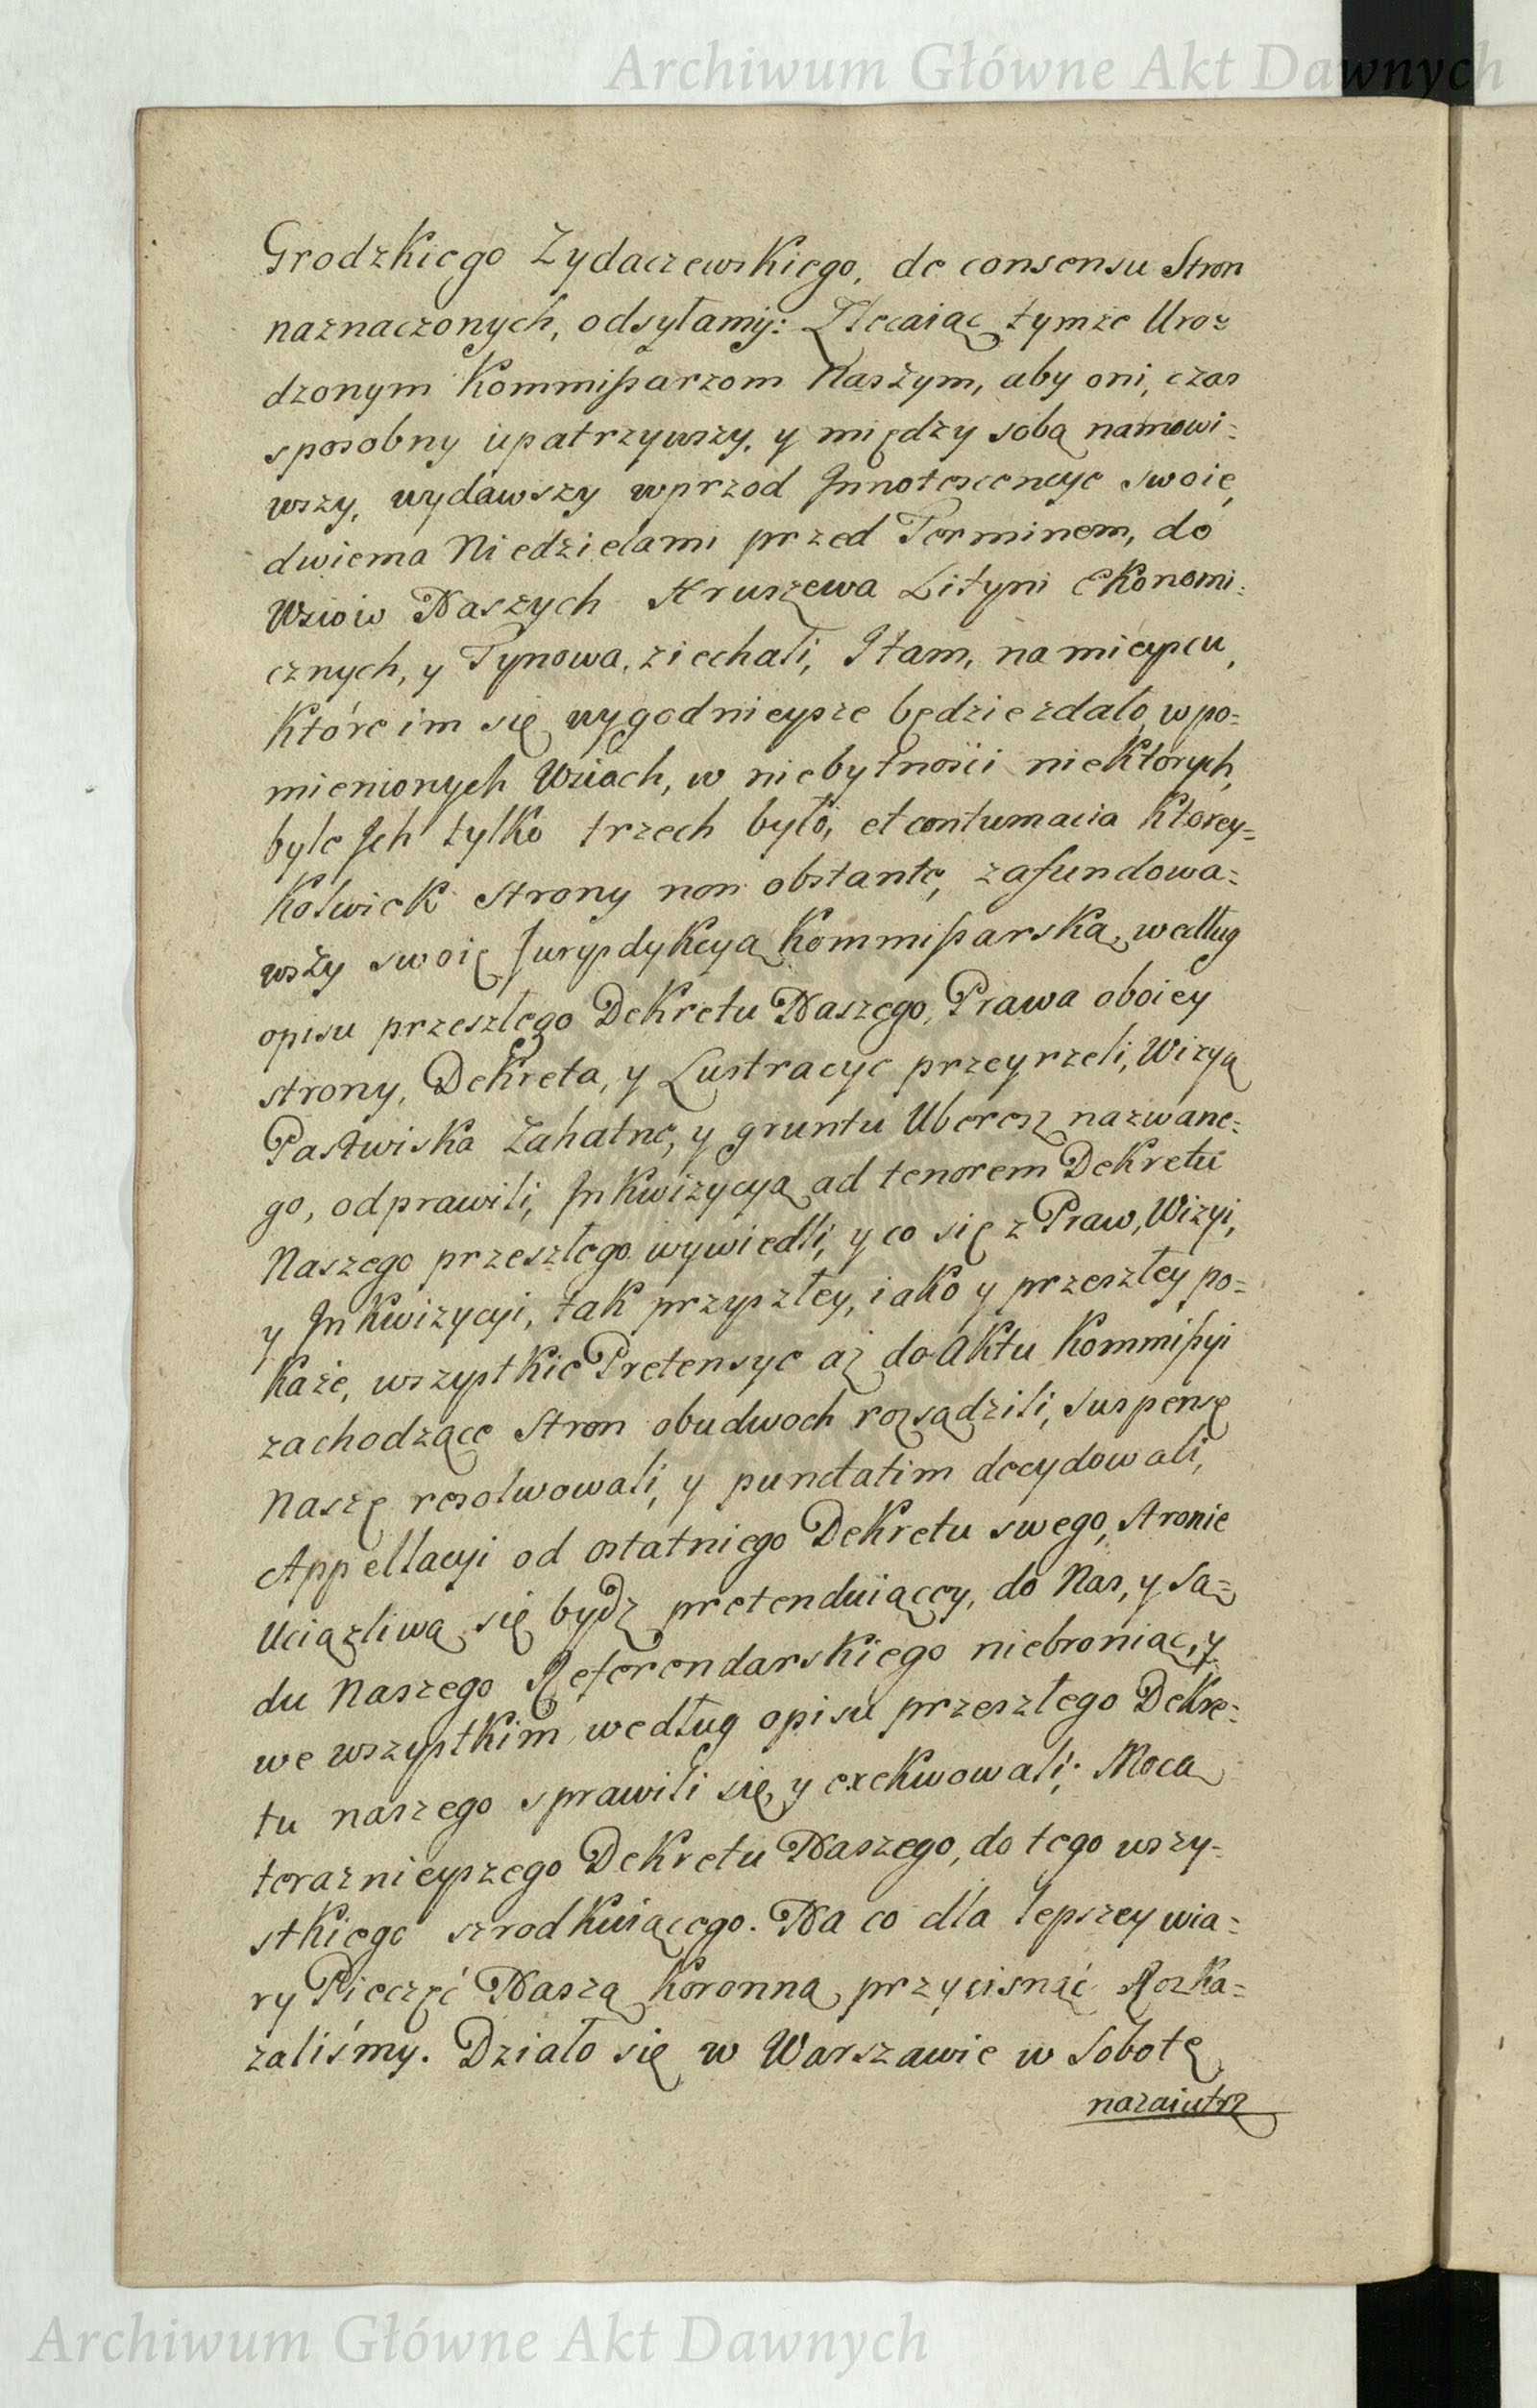 Archiwum Główne Akt Dawnych
Grodzkiego Zydaczewskiego, de consensu Stron
naznaczonych, odsyłamy: Zlecaiąc tymże Uro=
dzonym Kommißarzom Naszym, aby oni, czas
sposobny upatrzywszy, y między sobą namowi=
wszy, wydawszy wprzod Innotescencye swoie,
dwiema Niedzielami przed Terminem, do
Wsiow Naszych Hruszewa Lityni Ekonomi=
cznych, y Tynowa, ziechali, I tam, na mieyscu,
które im się wygodnieysze będzie zdało, w po=
mienionych Wsiach, w niebytnosci niektórych,
byle Ich tylko trzech było, et contumacia ktorey=
kolwiek strony non obstante, zafundowa=
wszy swoię Jurysdykcyą Kommißarską, według
opisu przeszłego Dekretu Naszego, Prawa oboiey
strony, Dekreta, y Lustracye przeyrzeli, Wizyą
Pastwiska Zahatne, y gruntu Uberesz nazwane=
go, odprawili, Inkwizycyą ad tenorem Dekretu
Naszego przeszłego wywiedli, y co się z Praw, Wizyi,
y Inkwizycyi, tak przyszłey, iako y przeszłey po=
każe, wszystkie Pretensye aż do Aktu Kommißyi
zachodzące Stron obudwoch rozsądzili, suspensę
Naszę rezolwowali, y punctatim decydowali,
Appellacyi od ostatniego Dekretu swego, stronie
Uciążliwą się bydź pretenduiącey, do Nas, y Są=
du Naszego Referendarskiego niebroniąc, y
we wszystkim według opisu przeszłego Dekre=
tu naszego sprawili się, y exekwowali; Mocą
teraznieyszego Dekretu Naszego, do tego wszy=
stkiego szrodkuiącego. Na co dla lepszey wia=
ry Pieczęć Naszą Koronną przycisnąć Rozka=
zaliśmy. Działo się w Warszawie w Sobotę
nazaiutrz
Archiwum Główne Akt Dawnych